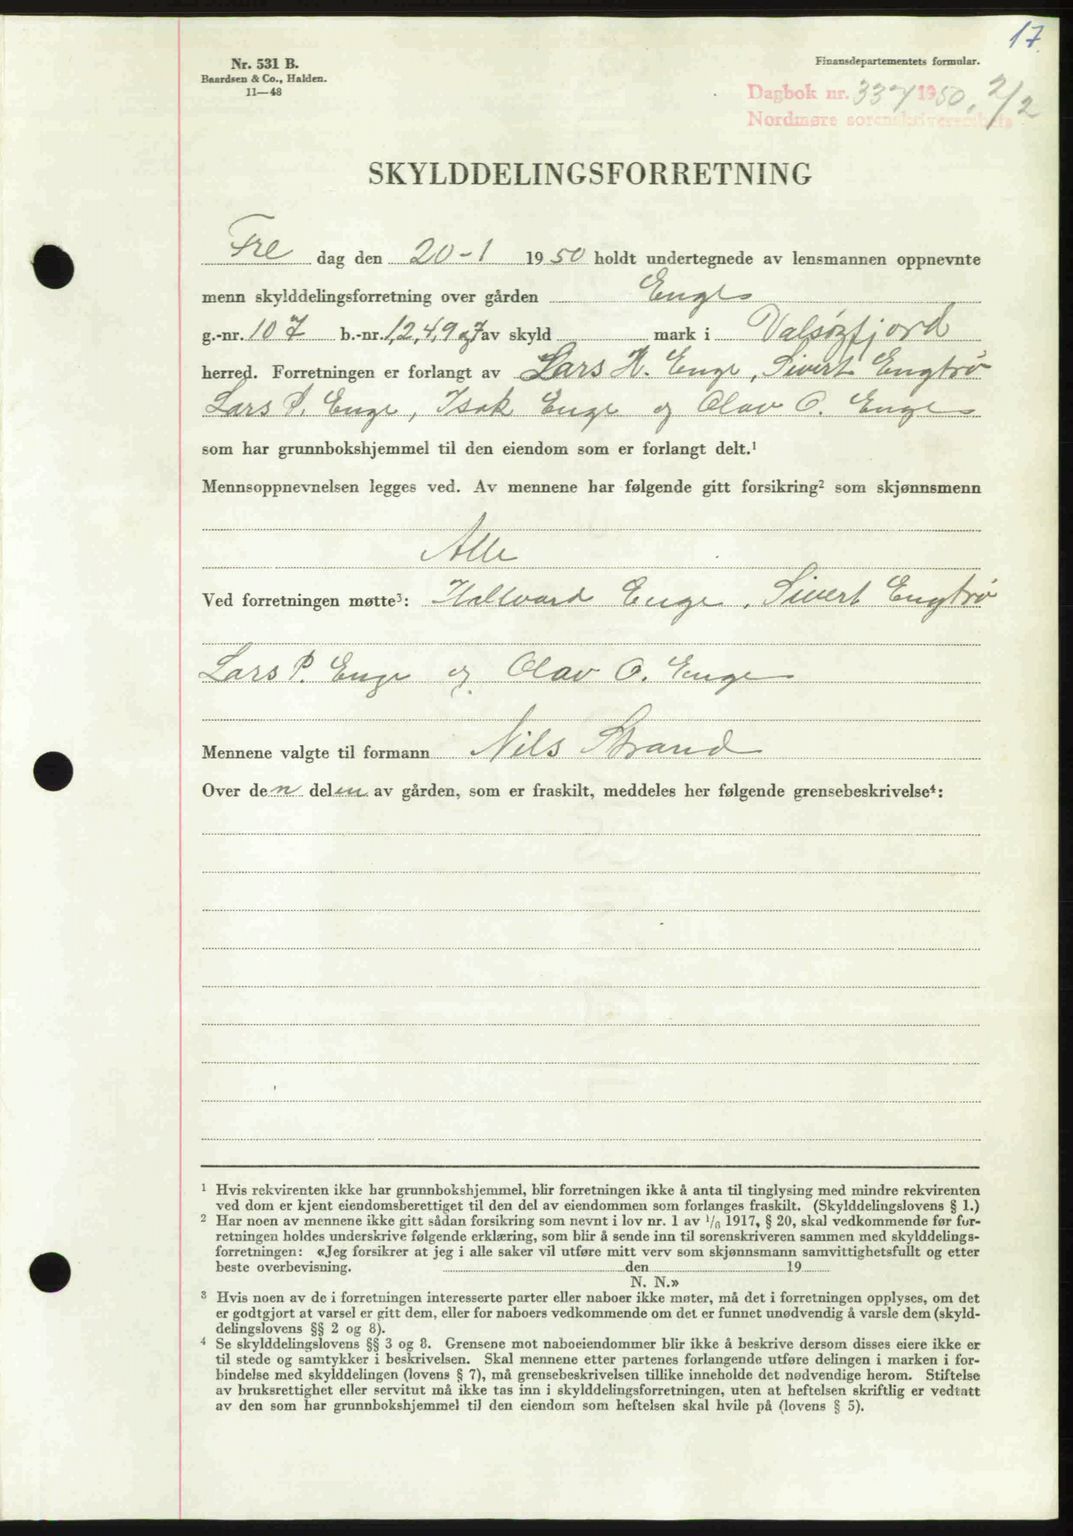 17.
Nr. 531 B.
Baardsen & Co., Halden.
11—48
Finansdepartementets formular.
Dagbok nr. 337 1950. 2/2
Nordmøre sorenskriverembete
SKYLDDELINGSFORRETNING
Fre dag den 20-1 1950 holdt undertegnede av lensmannen oppnevnte
menn skylddelingsforretning over gården Enge
g.-nr. 107 b.-nr. 1,2,4,9 og 7 av skyld mark i Valsøyfjord
herred. Forretningen er forlangt av Lars H. Enge, Sivert Engtrø
Lars P. Enge, Isak Enge og Olav O. Enge
som har grunnbokshjemmel til den eiendom som er forlangt delt.¹
Mennsoppnevnelsen legges ved. Av mennene har følgende gitt forsikring² som skjønnsmenn
Alle
Ved forretningen møtte³: Hallvard Enge, Sivert Engtrø
Lars P. Enge og Olav O. Enge
Mennene valgte til formann Nils Strand
Over den delen av gården, som er fraskilt, meddeles her følgende grensebeskrivelse⁴:
¹ Hvis rekvirenten ikke har grunnbokshjemmel, blir forretningen ikke å anta til tinglysing med mindre rekvirenten
ved dom er kjent eiendomsberettiget til den del av eiendommen som forlanges fraskilt. (Skylddelingslovens § 1.)
² Har noen av mennene ikke gitt sådan forsikring som nevnt i lov nr. 1 av 1/6 1917, § 20, skal vedkommende før for-
retningen holdes underskrive følgende erklæring, som blir å sende inn til sorenskriveren sammen med skylddelings-
forretningen: «Jeg forsikrer at jeg i alle saker vil utføre mitt verv som skjønnsmann samvittighetsfullt og etter
beste overbevisning. den 19
N. N.»
³ Hvis noen av de i forretningen interesserte parter eller naboer ikke møter, må det i forretningen opplyses, om det
er godtgjort at varsel er gitt dem, eller for naboers vedkommende om det er funnet unødvendig å varsle dem (skyld-
delingslovens §§ 2 og 8).
⁴ Se skylddelingslovens §§ 3 og 8. Grensene mot naboeiendommer blir ikke å beskrive dersom disses eiere ikke er
til stede og samtykker i beskrivelsen. Skal mennene etter partenes forlangende utføre delingen i marken i for-
bindelse med skylddelingen (lovens § 7), må grensebeskrivelsen tillike inneholde det nødvendige herom. Stiftelse
av bruksrettighet eller servitut må ikke tas inn i skylddelingsforretningen, uten at heftelsen skriftlig er vedtatt
av den som har grunnbokshjemmel til den eiendom som heftelsen skal hvile på (lovens § 5).